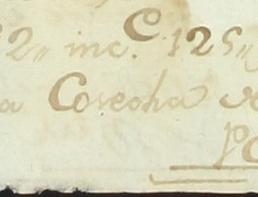 2,, inc. C. 125,,
a Cosecha